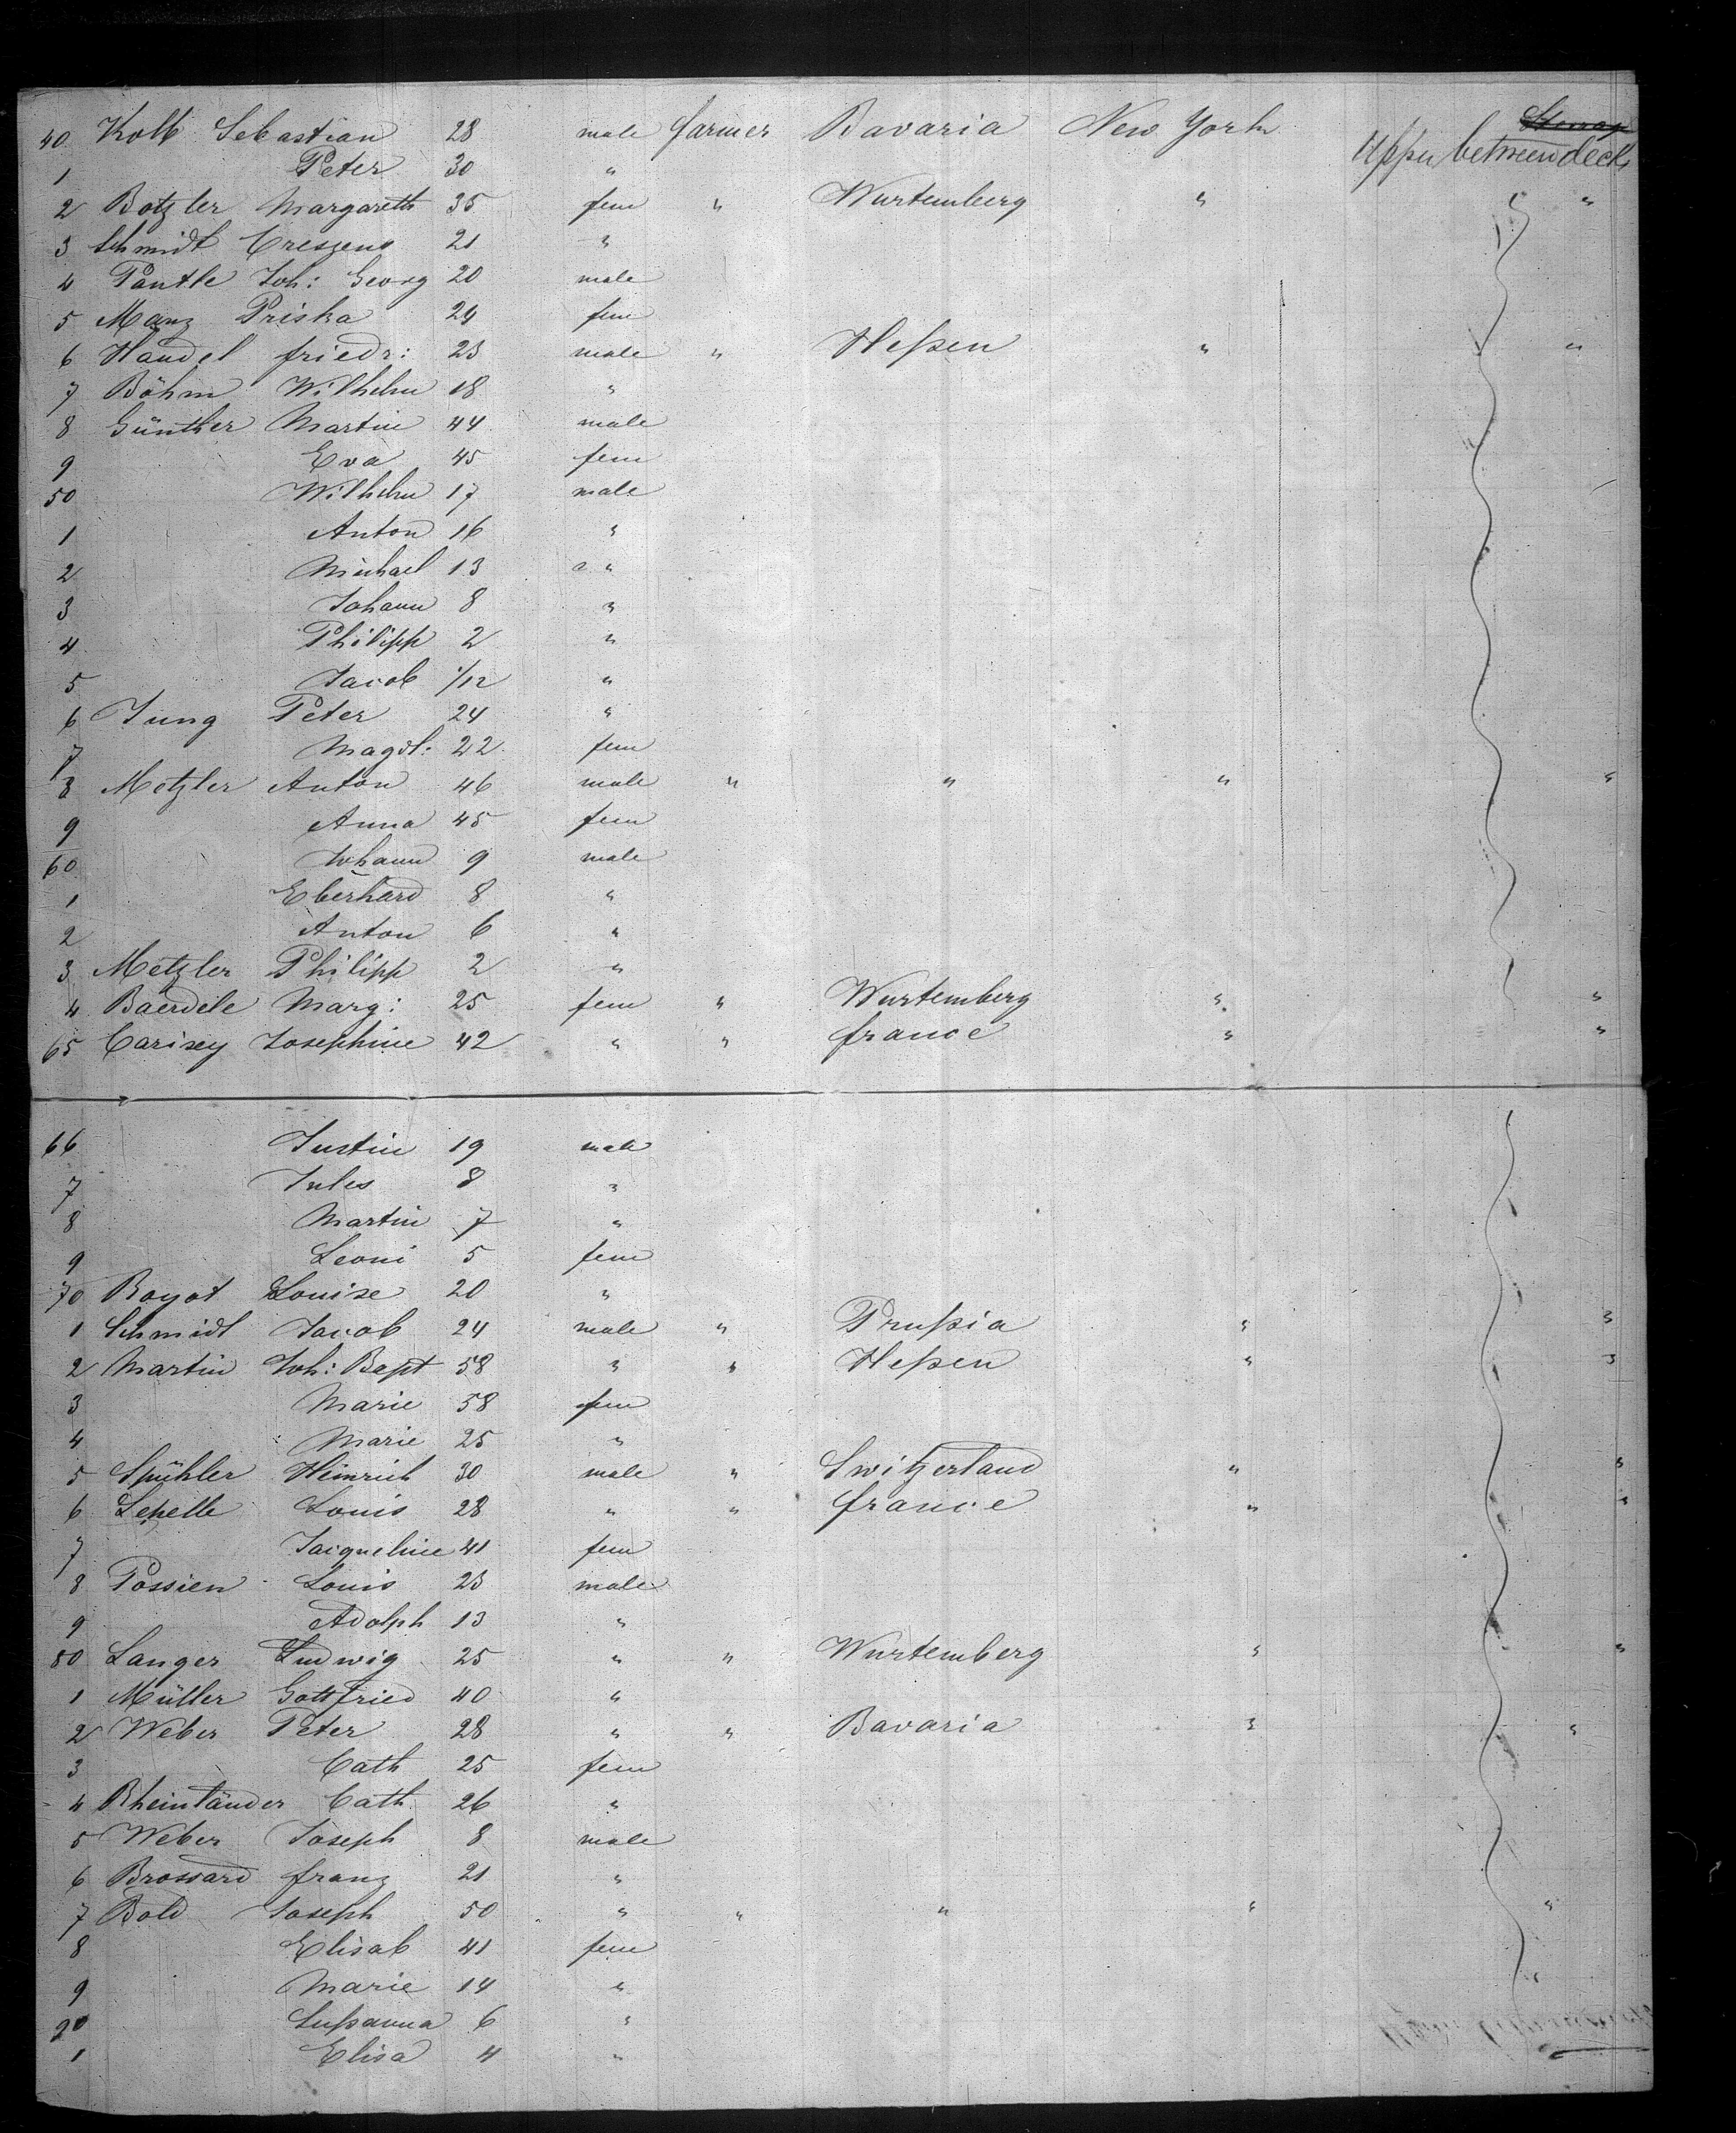 40 Kolb Sebastian 28 male farmer Bavaria New York ~~Steerage~~ Upper between deck
1 Peter 30 "
2 Botzler Margareth 35 fem " Wurtemberg " "
3 Schmidt Creszens 21 "
4 Pantle Joh: Georg 20 male
5 Manz Priska 24 fem
6 Händel friedr: 23 male " Heßen " "
7 Böhm Wilhelm 18 "
8 Günther Martin 44 male
9 Eva 45 fem
50 Wilhelm 17 male
1 Anton 16 "
2 Michael 13 "
3 Johann 8 "
4 Philipp 2 "
5 Jacob 1/12 "
6 Jung Peter 24 "
7 Magdl: 22 fem
8 Metzler Anton 46 male " " " "
9 Anna 45 fem
60 Johann 9 male
1 Eberhard 8 "
2 Anton 6 "
3 Metzler Philipp 2 "
4 Baerdele Marg: 25 fem " Wurtemberg " "
65 Carisey Josephine 42 " " france " "
66 Justin 19 male
7 Jules 8 "
8 Martin 7 "
9 Leoni 5 fem
70 Boyot Louise 20 "
1 Schmidt Jacob 24 male " Prußia " "
2 Martin Joh: Bapt 58 " " Heßen " "
3 Marie 58 fem
4 Marie 25 "
5 Spühler Heinrich 30 male " Switzerland " "
6 Lepelle Louis 28 " " france " "
7 Jacqueline 41 fem
8 Possien Louis 23 male
9 Adolph 13 "
80 Langer Ludwig 25 " " Wurtemberg " "
1 Müller Gottfried 40 "
2 Weber Peter 28 " " Bavaria " "
3 Cath 25 fem
4 Rheinländer Cath 26 "
5 Weber Joseph 8 male
6 Brossard franz 21 "
7 Bold Joseph 50 " " " " "
8 Elisab 41 fem
9 Marie 14 "
90 Sußanna 6 "
1 Elisa 4 "